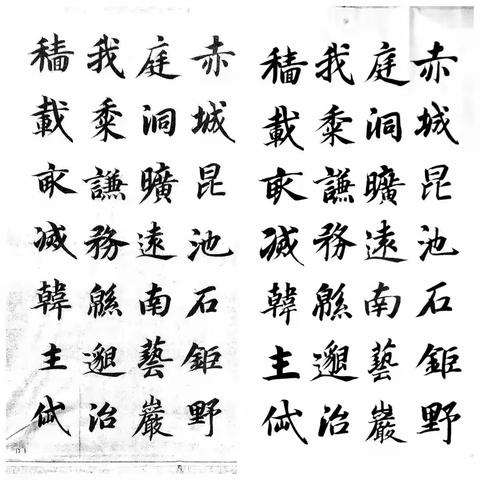 赤城昆池石鉅野
庭洞曠遠南藝巖
我黍謙務緜邈治
穡載滅韓主
赤城昆池石鉅野
庭洞曠遠南藝巖
我黍謙務緜邈治
穡載滅韓主